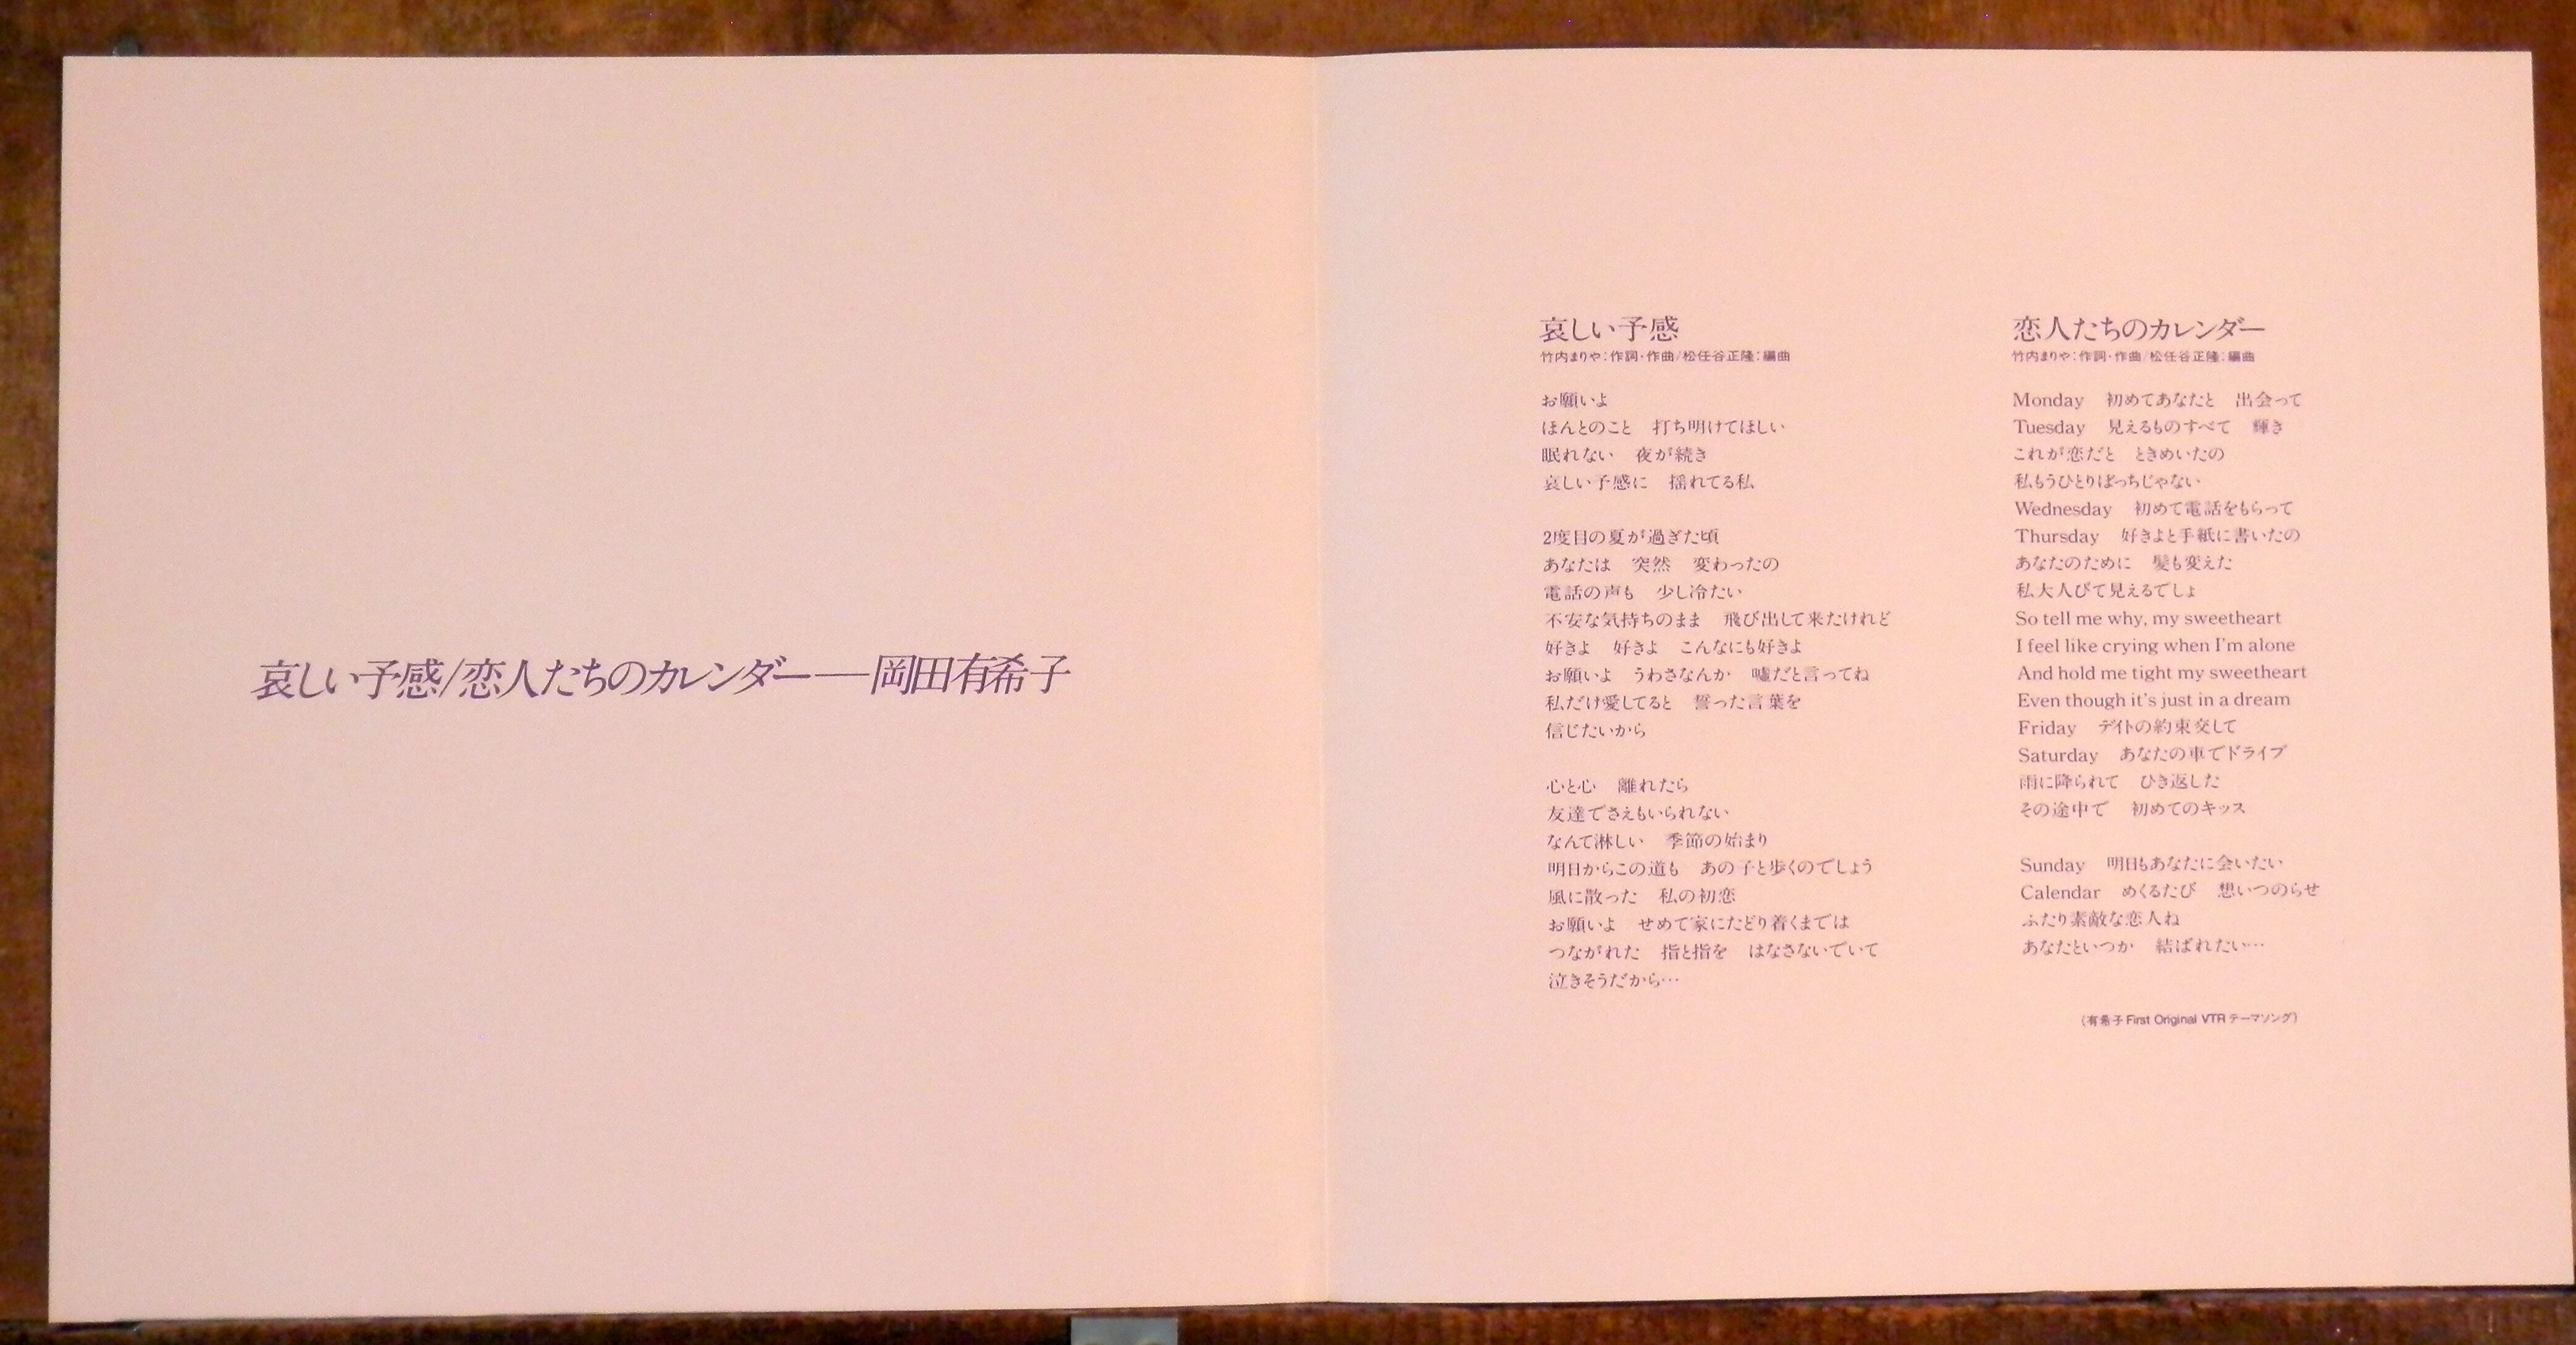 哀しい予感/恋人たちのカレンダー——岡田有希子
哀しい予感
竹内まりや:作詞・作曲/松任谷正隆:編曲
お願いよ
ほんとのこと　打ち明けてほしい
眠れない　夜が続き
哀しい予感に　揺れてる私
2度目の夏が過ぎた頃
あなたは　突然　変わったの
電話の声も　少し冷たい
不安な気持ちのまま　飛び出して来たけれど
好きよ　好きよ　こんなにも好きよ
お願いよ　うわさなんか　嘘だと言ってね
私だけ愛してると　誓った言葉を
信じたいから
心と心　離れたら
友達でさえもいられない
なんて淋しい　季節の始まり
明日からこの道も　あの子と歩くのでしょう
風に散った　私の初恋
お願いよ　せめて家にたどり着くまでは
つながれた　指と指を　はなさないでいて
泣きそうだから…
恋人たちのカレンダー
竹内まりや:作詞・作曲/松任谷正隆:編曲
Monday　初めてあなたと　出会って
Tuesday　見えるものすべて　輝き
これが恋だと　ときめいたの
私もうひとりぼっちじゃない
Wednesday　初めて電話をもらって
Thursday　好きよと手紙に書いたの
あなたのために　髪も変えた
私大人びて見えるでしょ
So tell me why, my sweetheart
I feel like crying when I'm alone
And hold me tight my sweetheart
Even though it's just in a dream
Friday　デイトの約束交して
Saturday　あなたの車でドライブ
雨に降られて　ひき返した
その途中で　初めてのキッス
Sunday　明日もあなたに会いたい
Calendar　めくるたび　想いつのらせ
ふたり素敵な恋人ね
あなたといつか　結ばれたい…
(有希子First Original VTRテーマソング)